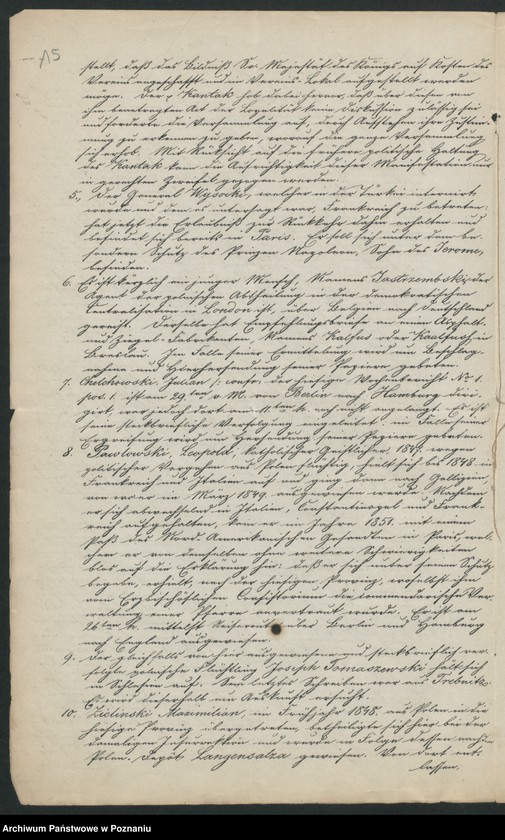 15
stellt, daß das Bildniß Sr. Majestät des Königs auf Kosten des
Vereins angeschafft und im Vereins-Lokal aufgestellt werden
möge. Der p. Kantak hob dabei hervor, daß über diesen von
ihm beantragten Act der Loyalität keine Discussion zulässig sei
und forderte die Versammlung auf, durch Aufstehen ihre Zustim-
mung zu erkennen zu geben, worauf die ganze Versammlung
sich erhob. Mit Rücksicht auf die frühere politische Haltung
des Kantak kann die Aufrichtigkeit dieser Manifestation nur
in gerechten Zweifel gezogen werden.
5., Der General Wysocki, welcher in der Türkei internirt
wurde und dem es untersagt war, Frankreich zu betreten,
hat jetzt die Erlaubniß zur Rückkehr dahin erhalten und
befindet sich bereits in Paris. Er soll sich unter dem be-
sondern Schutz des Prinzen Napoleon, Sohn des Jerome,
befinden.
6. Es ist kürzlich ein junger Mensch, Namens Jastrzembski, der
Agent der polnischen Abtheilung in der demokratischen
Centralisation in London ist, über Belgien nach Deutschland
gereist. Derselbe hat Empfehlungsbriefe an einen Asphalt-
und Ziegel-Fabrikanten, Namens Kalfus oder Kaulfuss in
Breslau. Im Falle seiner Ermittelung wird um Beschlag-
nahme und Hierhersendung seiner Papiere gebeten.
7. Chelchowski, Julian /: confr. der hiesige Wochenbericht No 1.
pos. 1. ist am 29ten v. M. von Berlin nach Hamburg diri-
girt, war jedoch dort am 11ten h. noch nicht angelangt. Es ist
seine steckbriefliche Verfolgung eingeleitet. Im Falle seiner
Ergreifung wird um Hersendung seiner Papiere gebeten.
8. Pawlowski, Leopold, katholischer Geistlicher, 1847 wegen
politischer Vergehen aus Polen flüchtig, hielt sich bis 1848 in
Frankreich und Italien auf und ging dann nach Galizien,
von wo er im März 1849 ausgewiesen wurde. Nachdem
er sich abwechselnd in Italien, Constantinopel und Frank-
reich aufgehalten, kam er im Jahre 1851 mit einem
Paß des Nord Amerikanischen Gesandten in Paris, wel-
chen er von demselben ohne weitere Schwierigkeiten
blos auf die Erklärung hin: daß er sich unter seinen Schutz
begebe, erhielt, nach der hiesigen Provinz, woselbst ihm
vom Erzbischöflichen Consistorium die commendarische Ver-
waltung einer Pfarre anvertraut wurde. Er ist am
26ten h. mittelst Reiseroute über Berlin und Hamburg
nach England ausgewiesen.
9. Der gleichfalls von hier ausgewiesene und steckbrieflich ver-
folgte polnische Flüchtling Joseph Tomaszewski hält sich
in Schlesien auf. Sein letztes Schreiben war aus Trebnitz.
Es wird dieserhalb um Auskunft ersucht.
10. Zielinski Maximilian, im Frühjahr 1848 aus Polen in die
hiesige Provinz übergetreten, betheiligte sich hier bei der
damaligen Insurrection und wurde in Folge dessen nach
Polen-Depot Langensalza gewiesen. Von dort ent-
lassen,
Archiwum Państwowe w Poznaniu